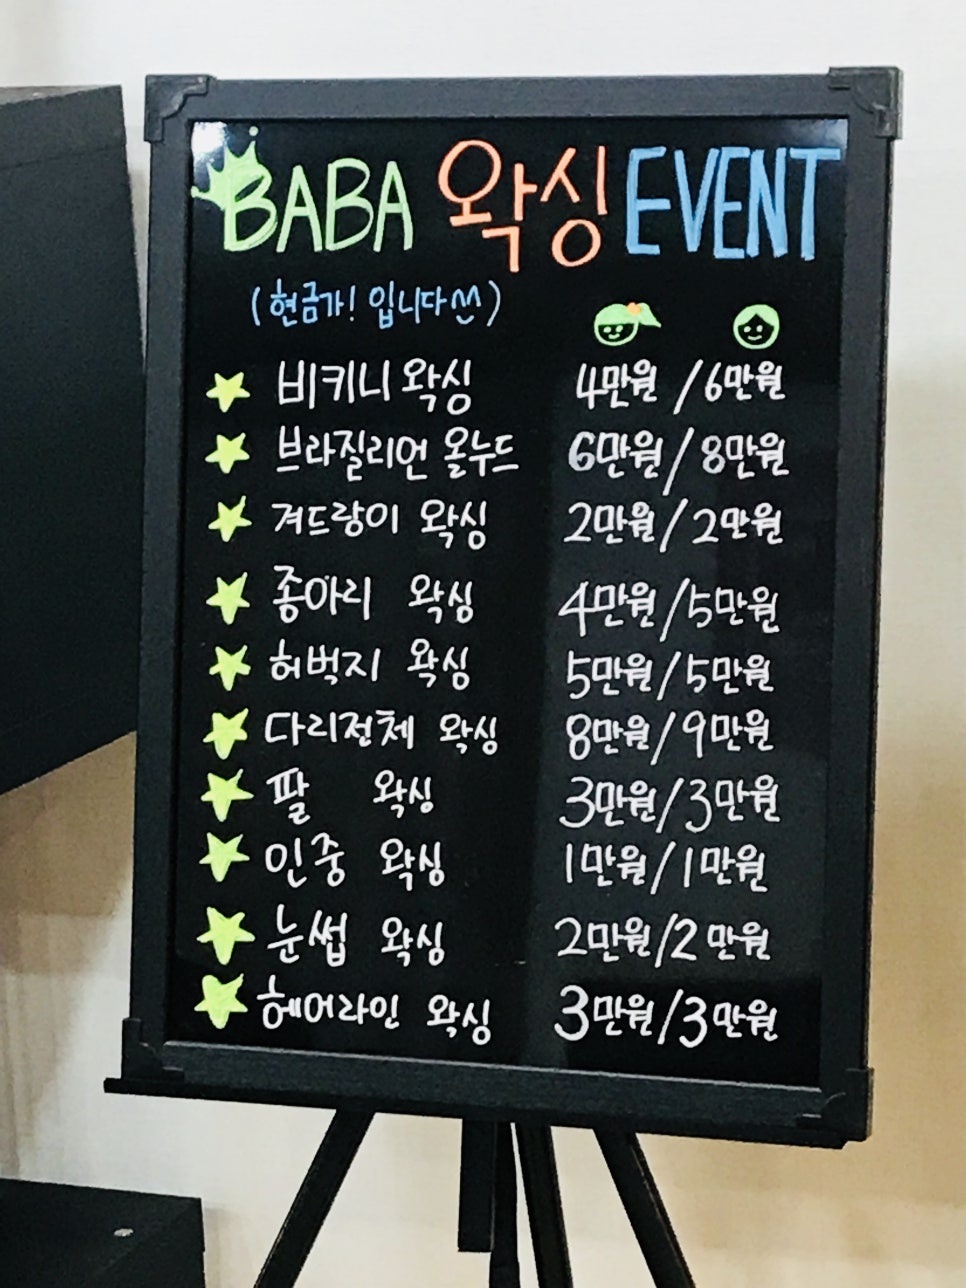 BABA 왁싱 EVENT
(현금가! 입니다^^)
비키니 왁싱 4만원 /6만원
브라질리언 올누드 6만원/8만원
겨드랑이 왁싱 2만원/2만원
종아리 왁싱 4만원/5만원
허벅지 왁싱 5만원/5만원
다리전체 왁싱 8만원/9만원
팔 왁싱 3만원/3만원
인중 왁싱 1만원/1만원
눈썹 왁싱 2만원/2만원
헤어라인 왁싱 3만원/3만원